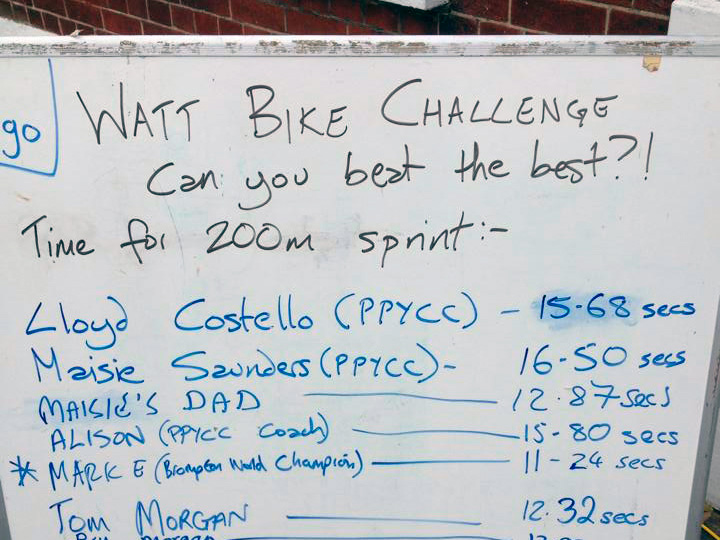 go
WATT BIKE CHALLENGE
Can you beat the best?!
Time for 200m sprint:-
Lloyd Costello (PPYCC) - 15-68 secs
Maisie Saunders (PPYCC)- 16-50 secs
MAISIE'S DAD — 12.87 secs
ALISON (PPYCC Coach) — 15-80 secs
* MARK E (Brompton World Champion) — 11-24 secs
TOM MORGAN — 12.32 secs